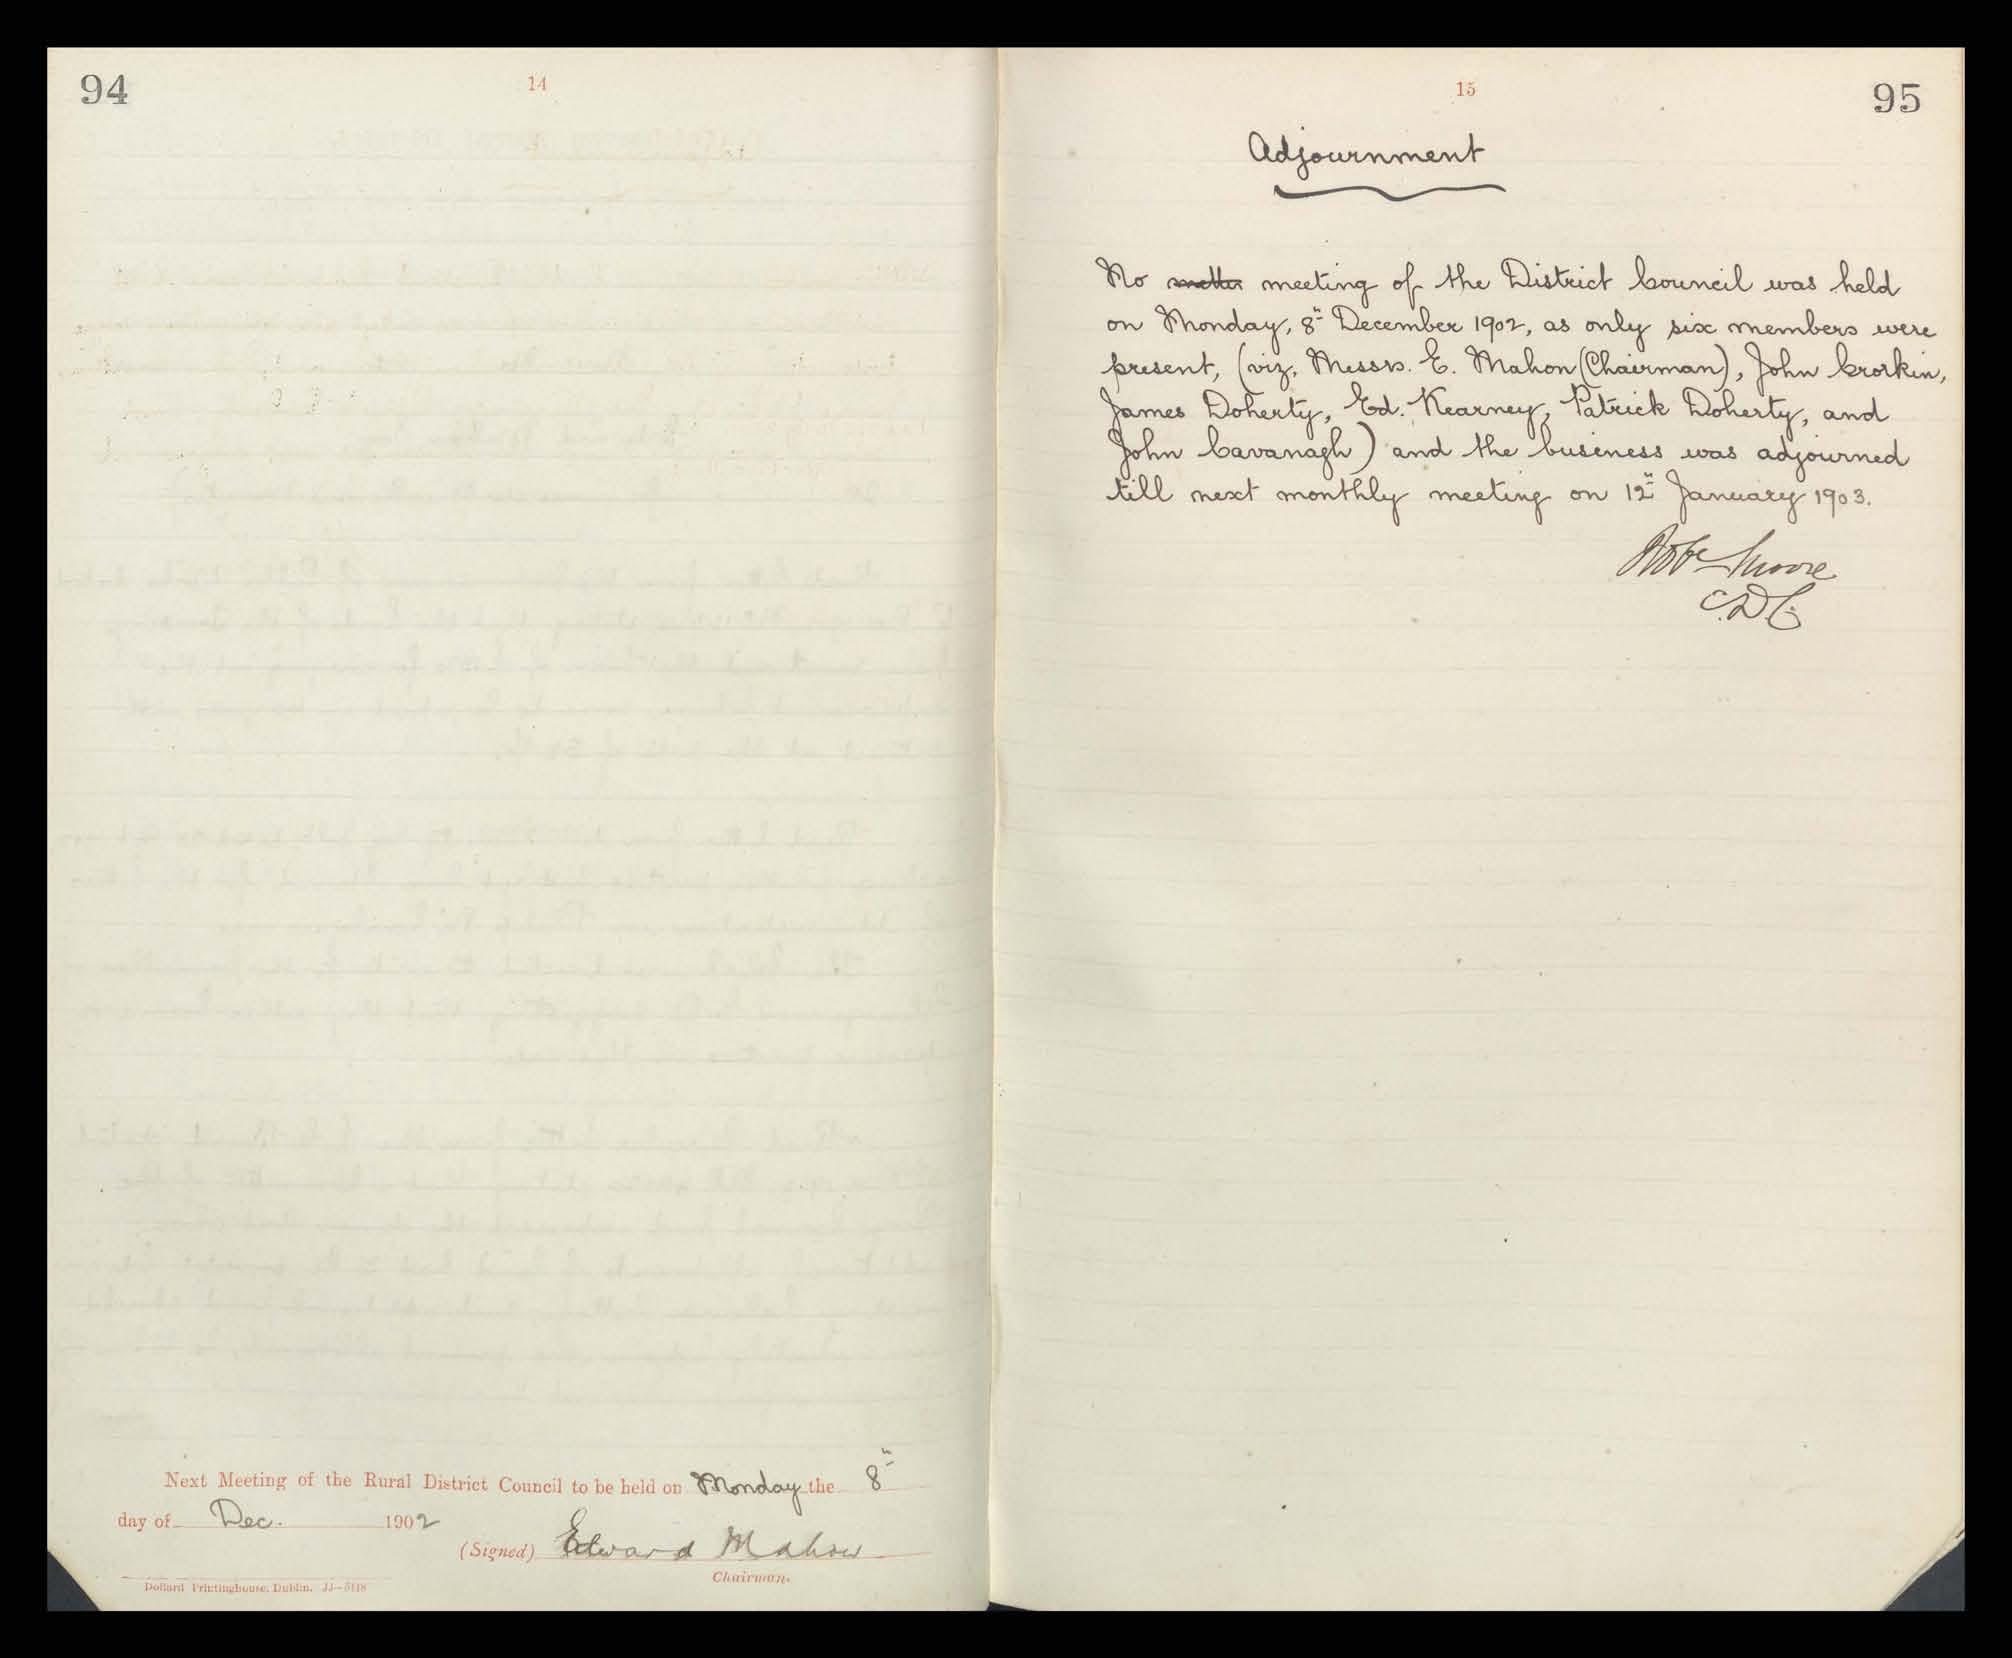 94
14
Next Meeting of the Rural District Council to be held on Monday the 8"
day of Dec. 1902
(Signed) Edward Mahon
Chairman.
Dollard Printinghouse, Dublin. JJ—5118
15
95
Adjournment
No meeting of the District Council was held
on Monday, 8" December 1902, as only six members were
present, (viz, Messrs. E. Mahon (Chairman), John Crorkin,
James Doherty, Ed. Kearney, Patrick Doherty, and
John Cavanagh) and the business was adjourned
till next monthly meeting on 12" January 1903.
Robt Moore